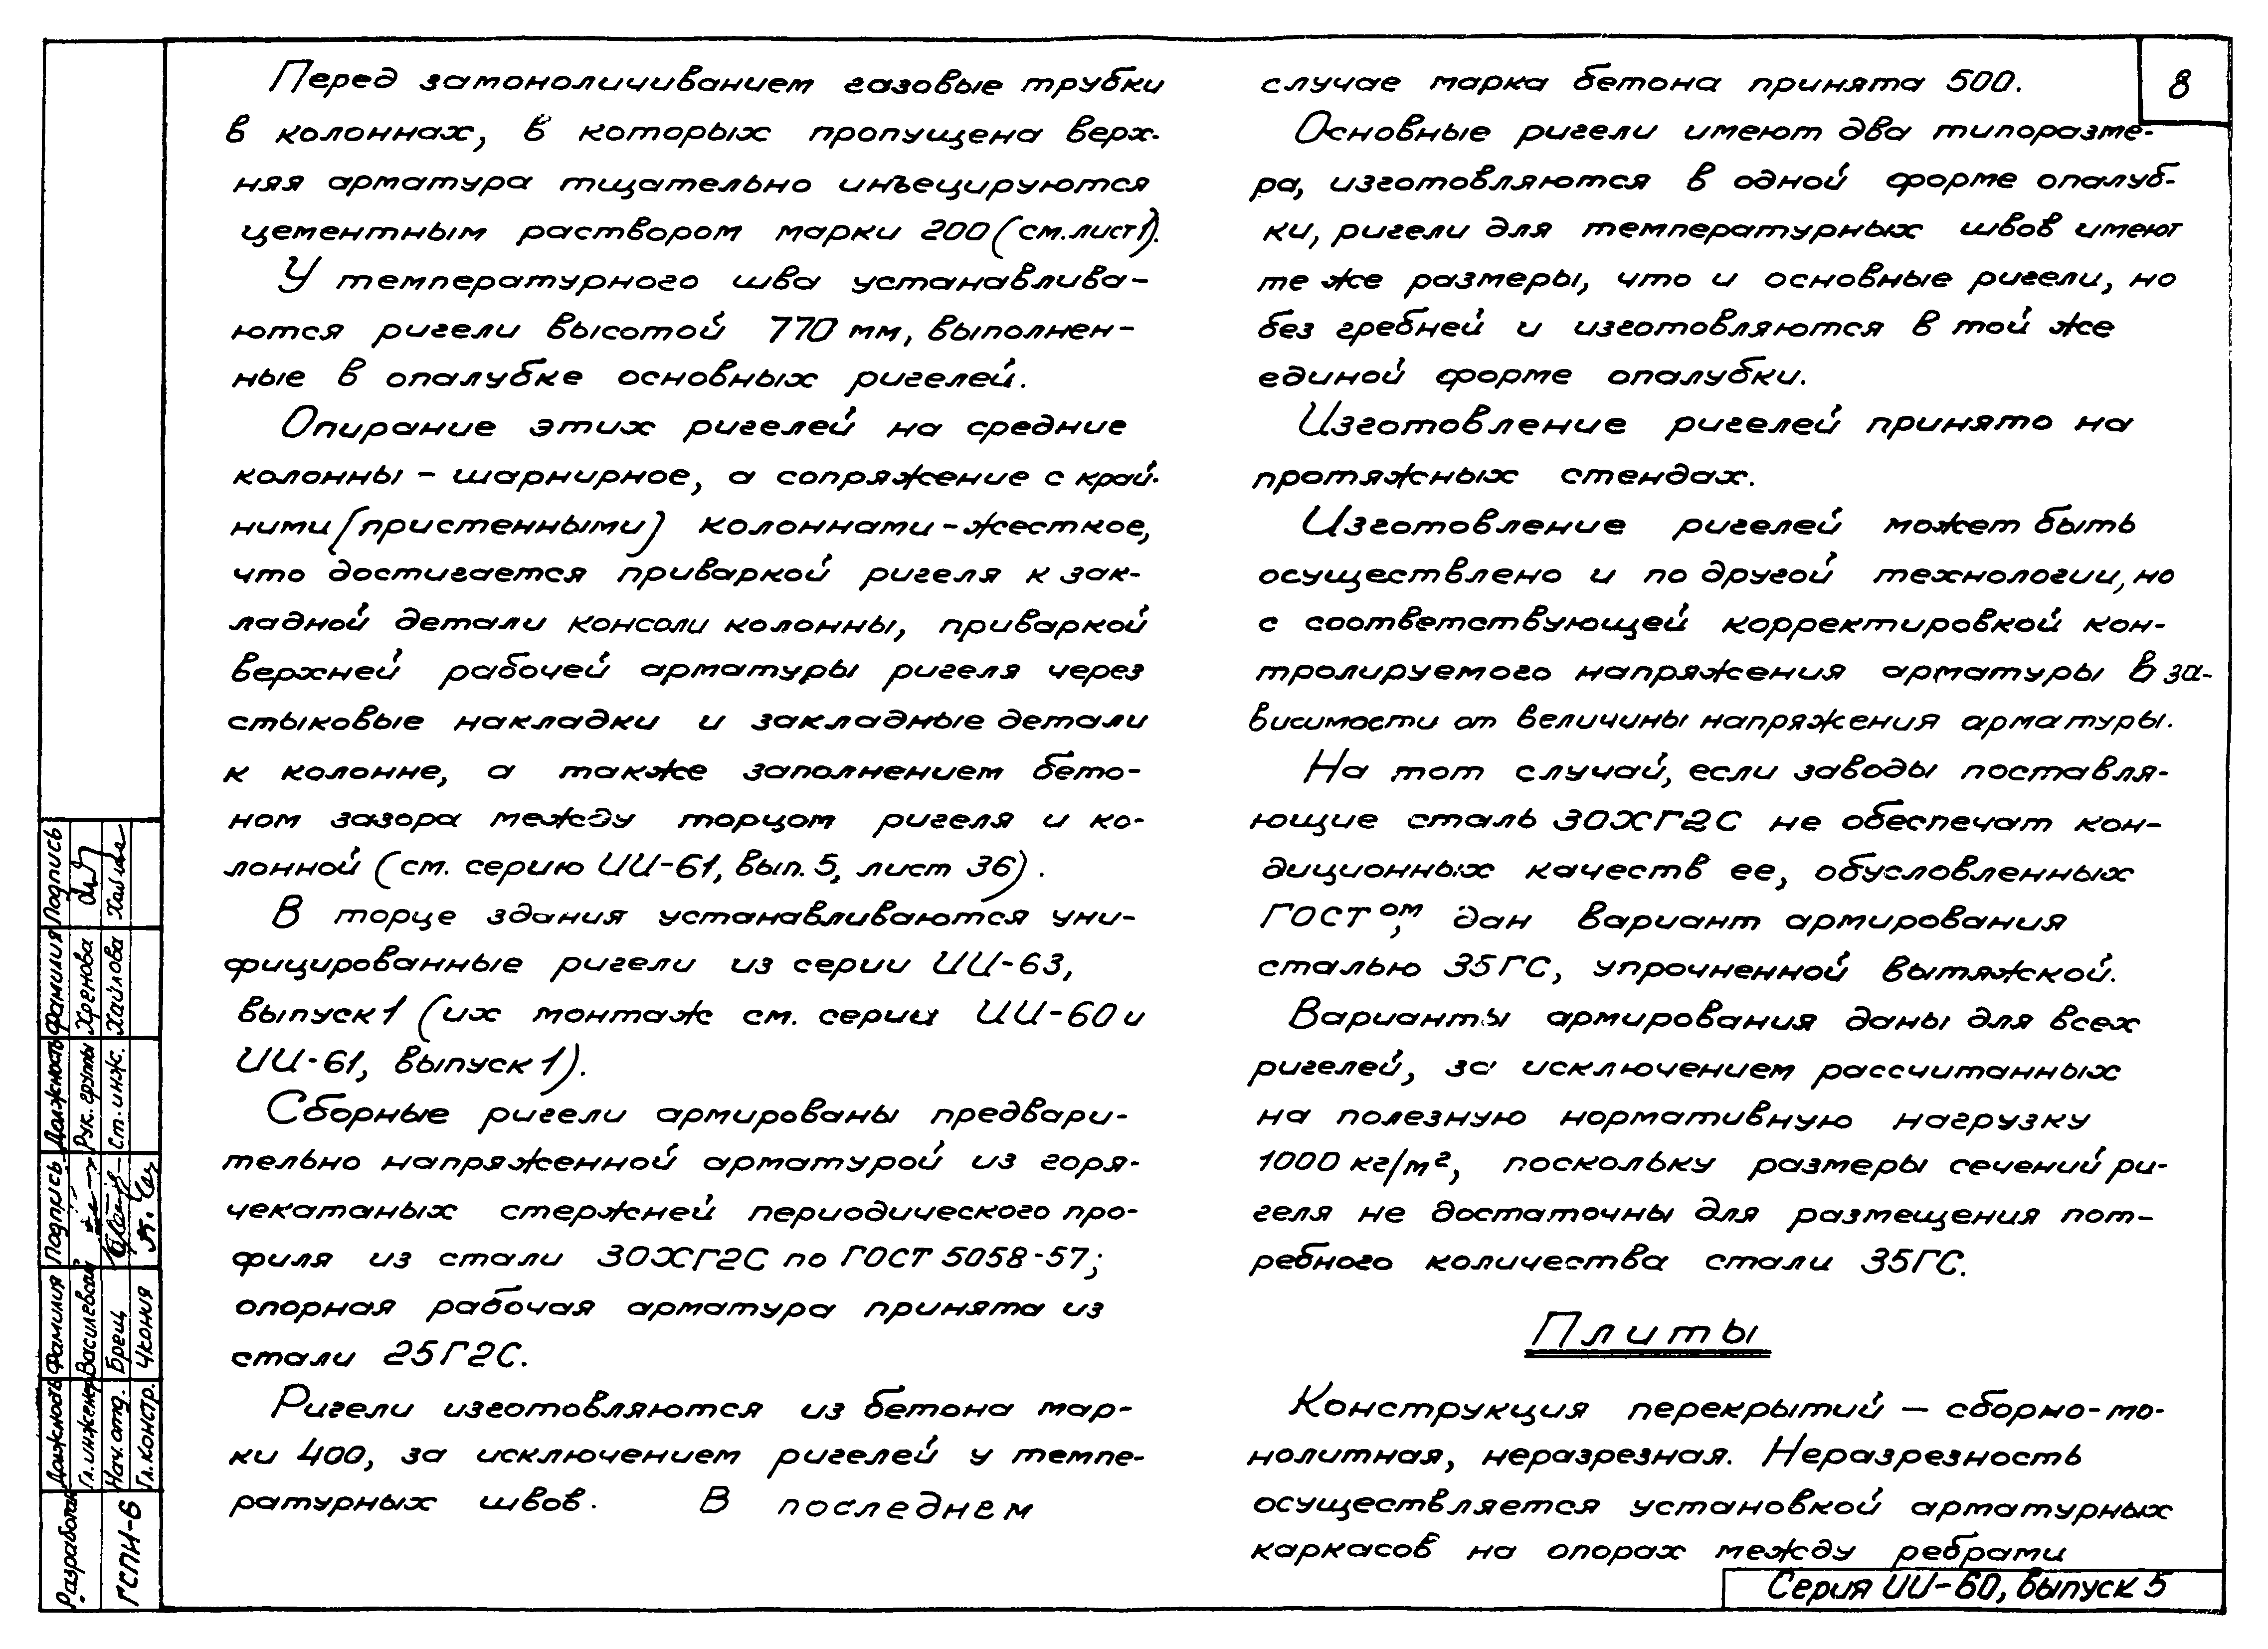 Перед замоноличиванием газовые трубки
в колоннах, в которых пропущена верх-
няя арматура тщательно инъецируются
цементным раствором марки 200 (см. лист 1).
У температурного шва устанавлива-
ются ригели высотой 770 мм, выполнен-
ные в опалубке основных ригелей.
Опирание этих ригелей на средние
колонны – шарнирное, а сопряжение с край-
ними (пристенными) колоннами – жесткое,
что достигается приваркой ригеля к зак-
ладной детали консоли колонны, приваркой
верхней рабочей арматуры ригеля через
стыковые накладки и закладные детали
к колонне, а также заполнением бето-
ном зазора между торцом ригеля и ко-
лонной (см. серию ИИ-61, вып. 5, лист 36).
В торце здания устанавливаются уни-
фицированные ригели из серии ИИ-63,
выпуск 1 (их монтаж см. серии ИИ-60 и
ИИ-61, выпуск 1).
Сборные ригели армированы предвари-
тельно напряженной арматурой из горя-
чекатаных стержней периодического про-
филя из стали 30ХГ2С по ГОСТ 5058-57;
опорная рабочая арматура принята из
стали 25Г2С.
Ригели изготовляются из бетона мар-
ки 400, за исключением ригелей у темпе-
ратурных швов. В последнем
случае марка бетона принята 500.
Основные ригели имеют два типоразме-
ра, изготовляются в одной форме опалуб-
ки, ригели для температурных швов имеют
те же размеры, что и основные ригели, но
без гребней и изготовляются в той же
единой форме опалубки.
Изготовление ригелей принято на
протяжных стендах.
Изготовление ригелей может быть
осуществлено и по другой технологии, но
с соответствующей корректировкой кон-
тролируемого напряжения арматуры в за-
висимости от величины напряжения арматуры.
На тот случай, если заводы поставля-
ющие сталь 30ХГ2С не обеспечат кон-
диционных качеств ее, обусловленных
ГОСТом, дан вариант армирования
сталью 35ГС, упрочненной вытяжкой.
Варианты армирования даны для всех
ригелей, за исключением рассчитанных
на полезную нормативную нагрузку
1000 кг/м², поскольку размеры сечений ри-
геля не достаточны для размещения пот-
ребного количества стали 35ГС.
Плиты
Конструкция перекрытий – сборно-мо-
нолитная, неразрезная. Неразрезность
осуществляется установкой арматурных
каркасов на опорах между ребрами
8
Серия ИИ-60, выпуск 5
Разработан
ГСПИ-6
Должность Фамилия Подпись Должность Фамилия Подпись
Гл. инженер Василевский Рук. группы Хренова
Нач. отд. Брещ Ст. инж. Хайлова
Гл. констр. Чкония